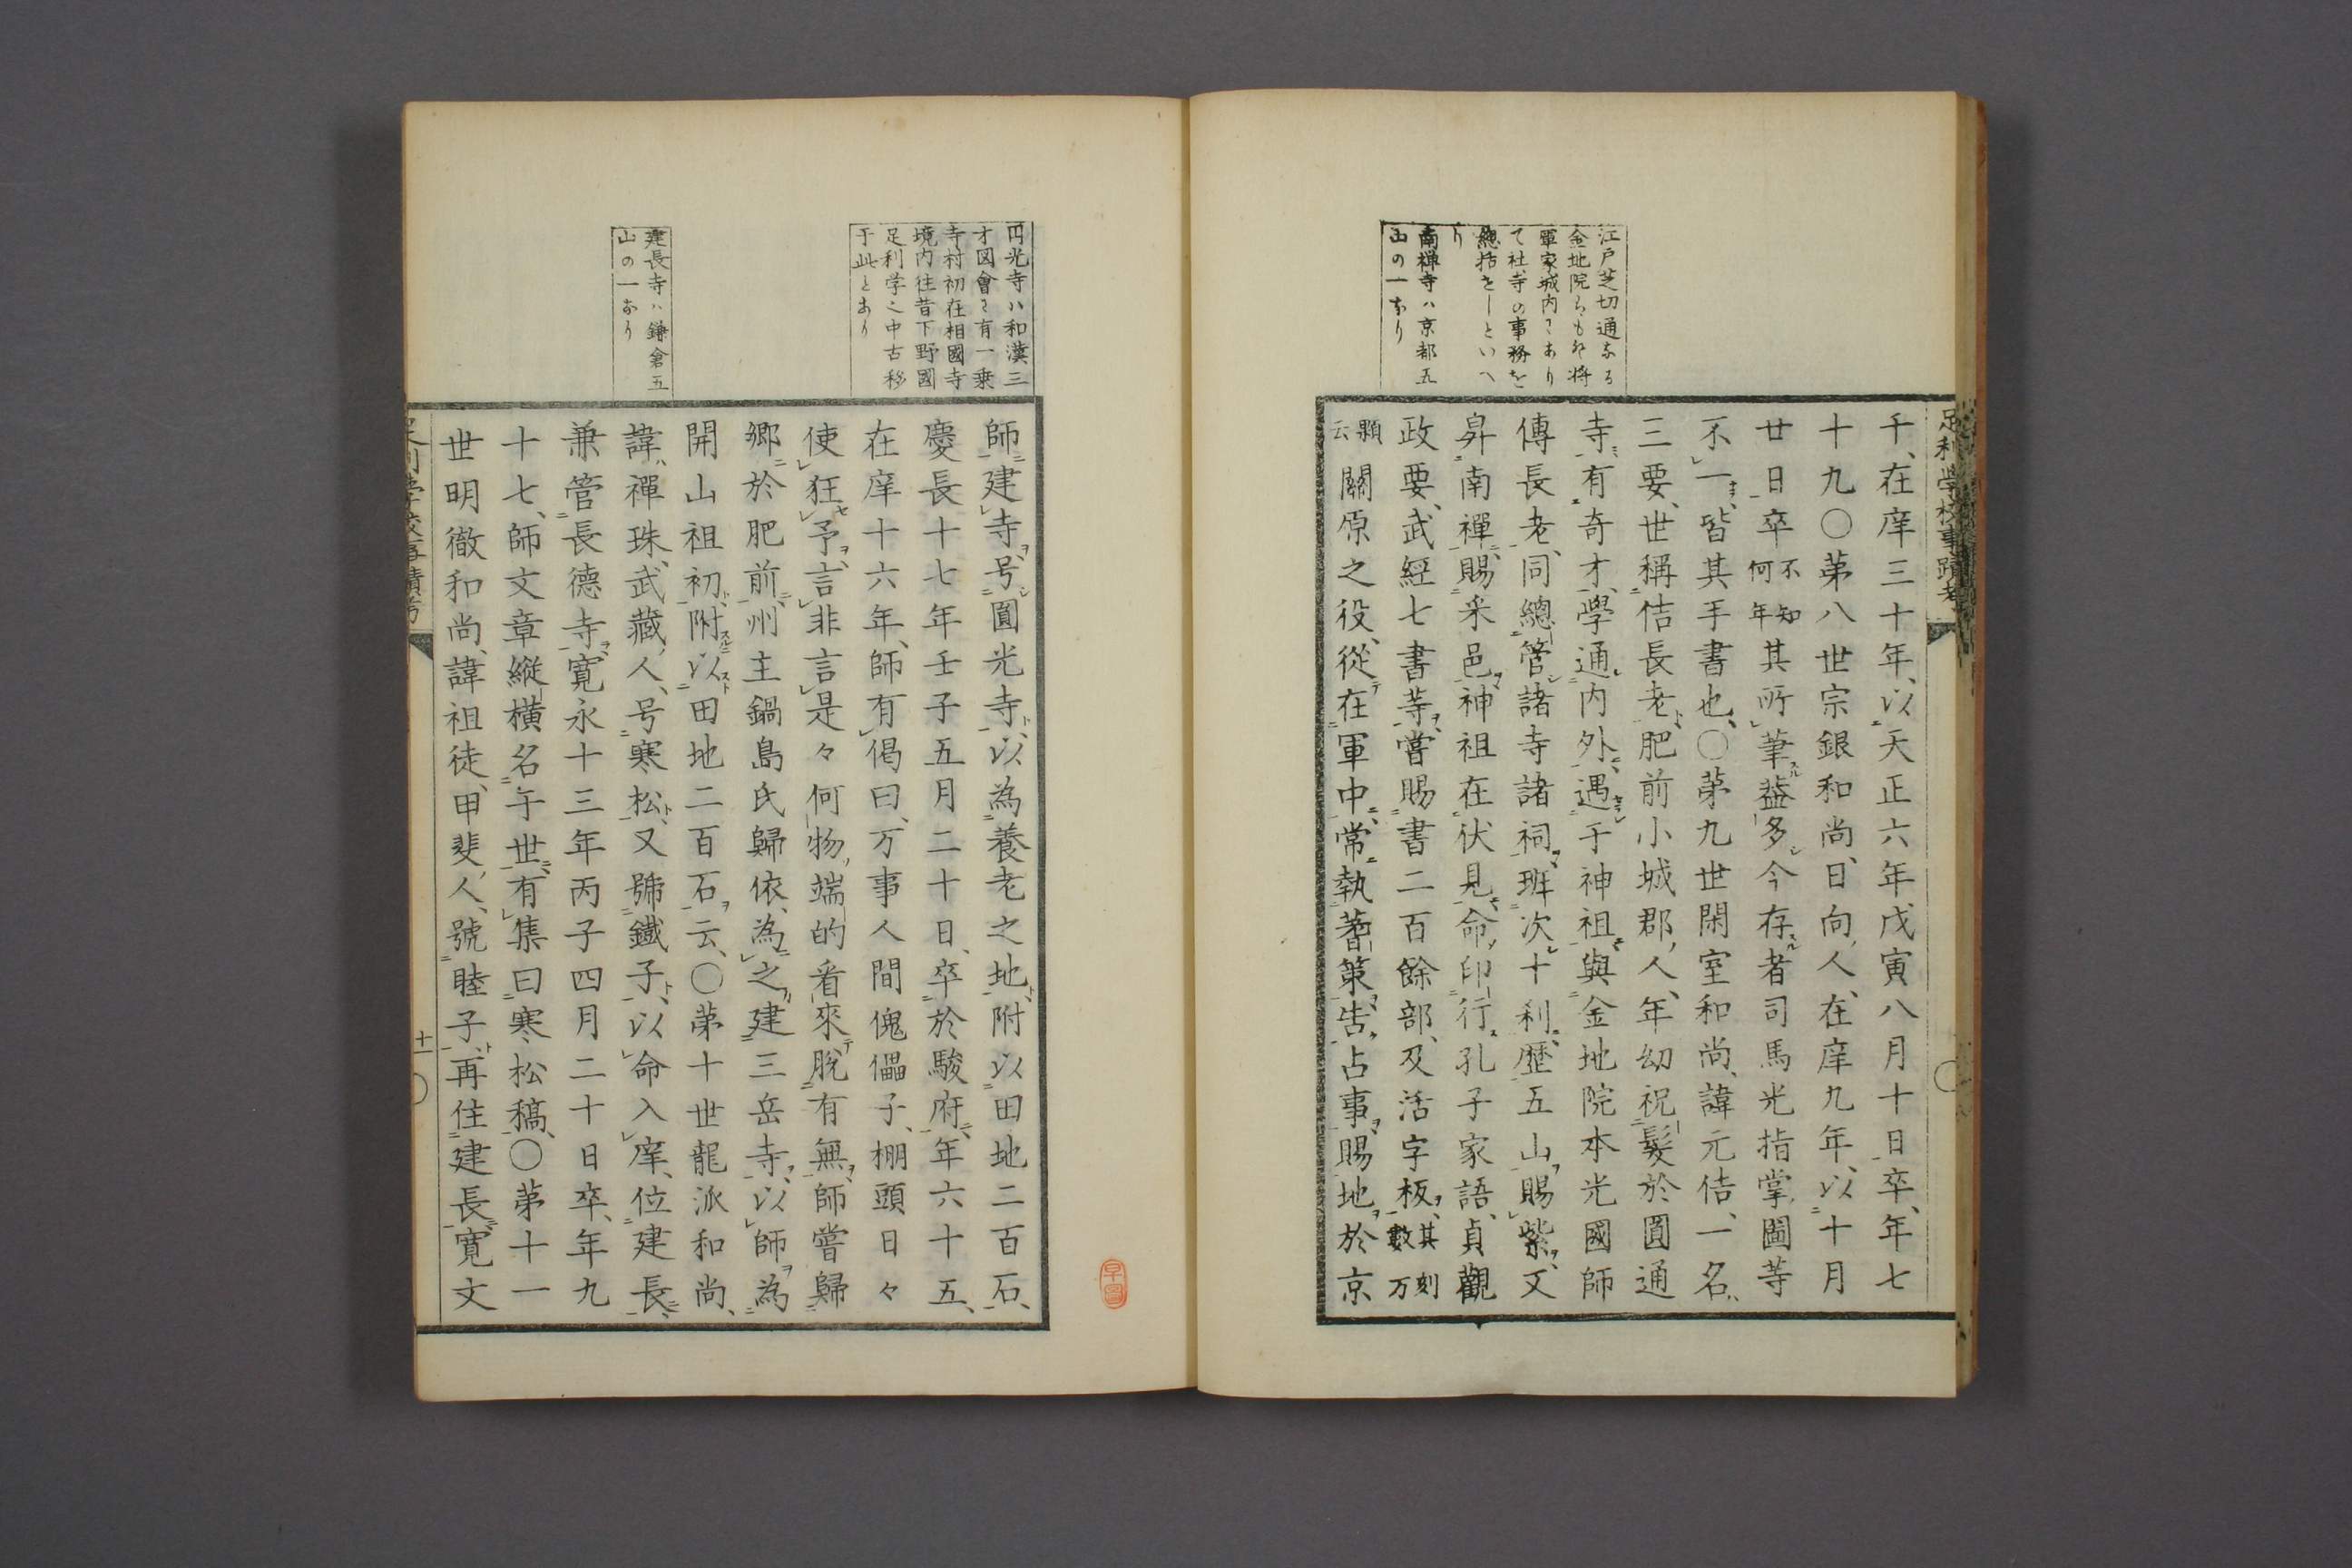 江戸芝切通なる
金地院らも此将
軍家城内にあり
て社寺の事務を
總括せしといへ
り
南禅寺ハ京都五
山の一なり
足利學校事蹟考
千、在庠三十年、以天正六年戊寅八月十日卒、年七
十九〇第八世宗銀和尚、日向人、在庠九年、以十月
廿日卒不知何年其所筆益多今存者司馬光指掌圖等
不一、皆其手書也、〇第九世閑室和尚、諱元佶、一名
三要、世稱佶長老、肥前小城郡人、年幼祝髮於圓通
寺、有奇才、學通内外、遇于神祖與金地院本光國師
傳長老、同總管諸寺諸祠、班次十利、歴五山賜紫、又
昇南禪、賜釆邑、神祖在伏見、命印行孔子家語、貞觀
政要、武經七書等、嘗賜書二百餘部、及活字板、其刻數万
顆云關原之役、從在軍中、常執蓍策、告占事、賜地於京
円光寺ハ和漢三
才図會に有一乗
寺村初在相國寺
境内往昔下野國
足利学之中古移
于此とあり
建長寺ハ鎌倉五
山の一なり
師建寺、号圓光寺、以為養老之地、附以田地二百石、
慶長十七年壬子五月二十日、卒於駿府、年六十五、
在庠十六年、師有偈曰、万事人間傀儡子、棚頭日々
使狂予、言非言是々何物、端的看來、脱有無、師嘗歸
郷於肥前、州主鍋島氏歸依、為之建三岳寺、以師為
開山祖初、附以田地二百石云、〇第十世龍派和尚、
諱禪珠、武藏人、号寒松、又號鐵子、以命入庠、位建長、
兼管長德寺、寛永十三年丙子四月二十日卒、年九
十七、師文章縦横名于世、有集曰寒松稿、〇第十一
世明徹和尚、諱祖徒、甲斐人、號睦子、再住建長、寛文
足利學校事蹟考
十一